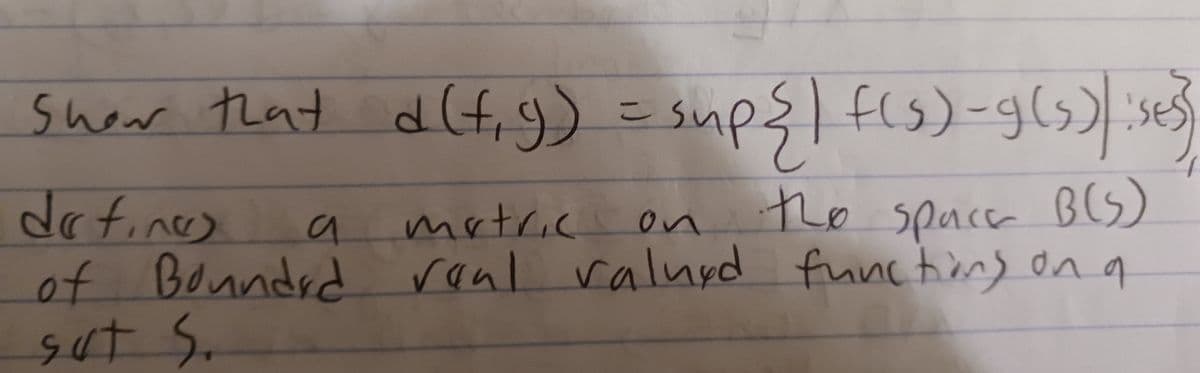 Show that d(f,g) = sup{| f(s)-g(s)| : s∈S},
defines a metric on the space B(S)
of Bounded real valued functions on a
set S.